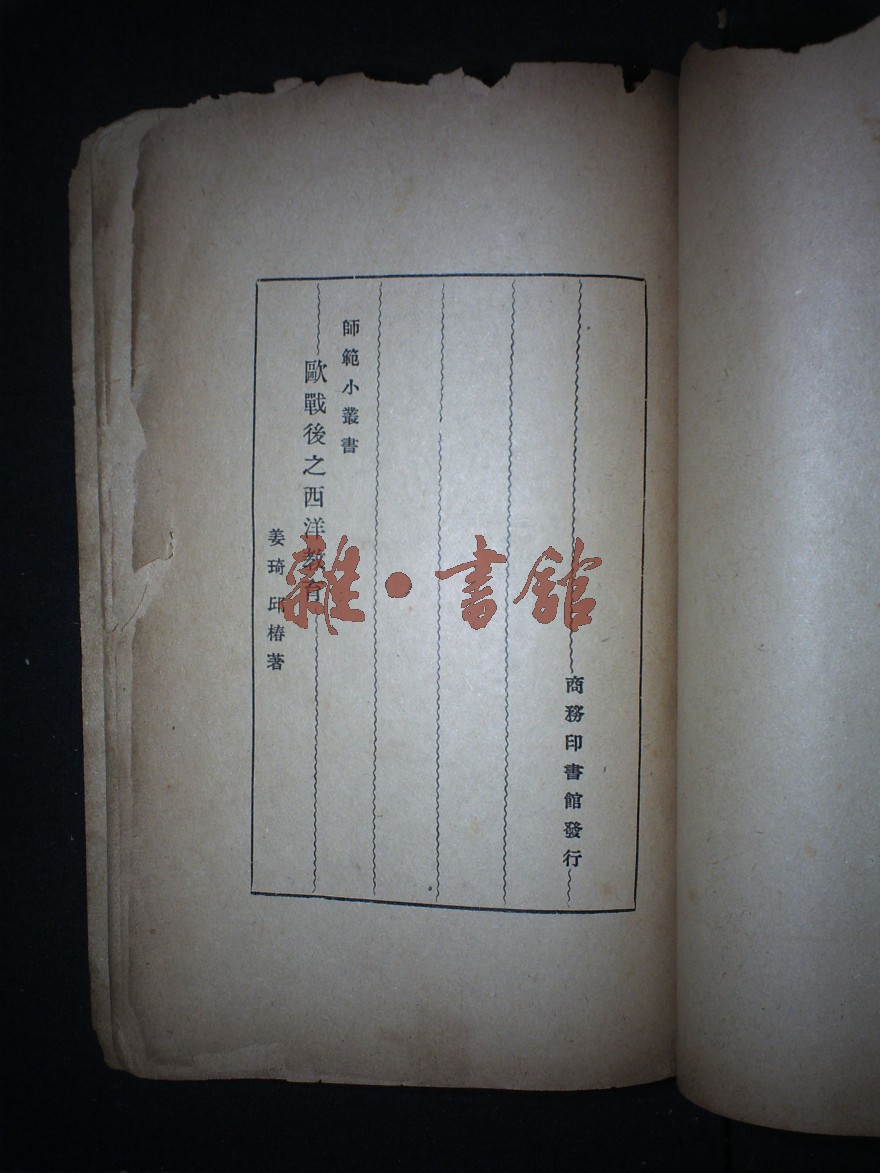 師範小叢書
歐戰後之西洋教育
姜琦 邱椿著
商務印書館發行
雜·書館